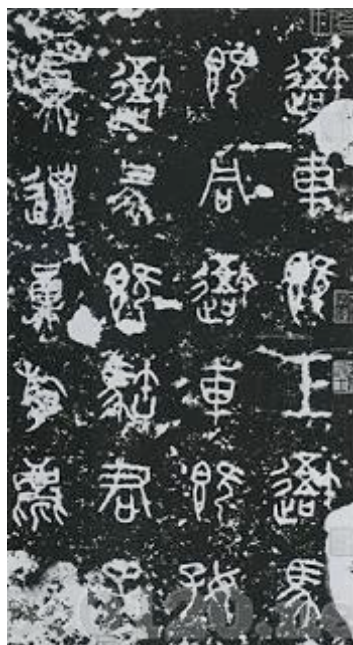 避車既工避馬
既同避車既好
避馬既君子
員邋員斿麀